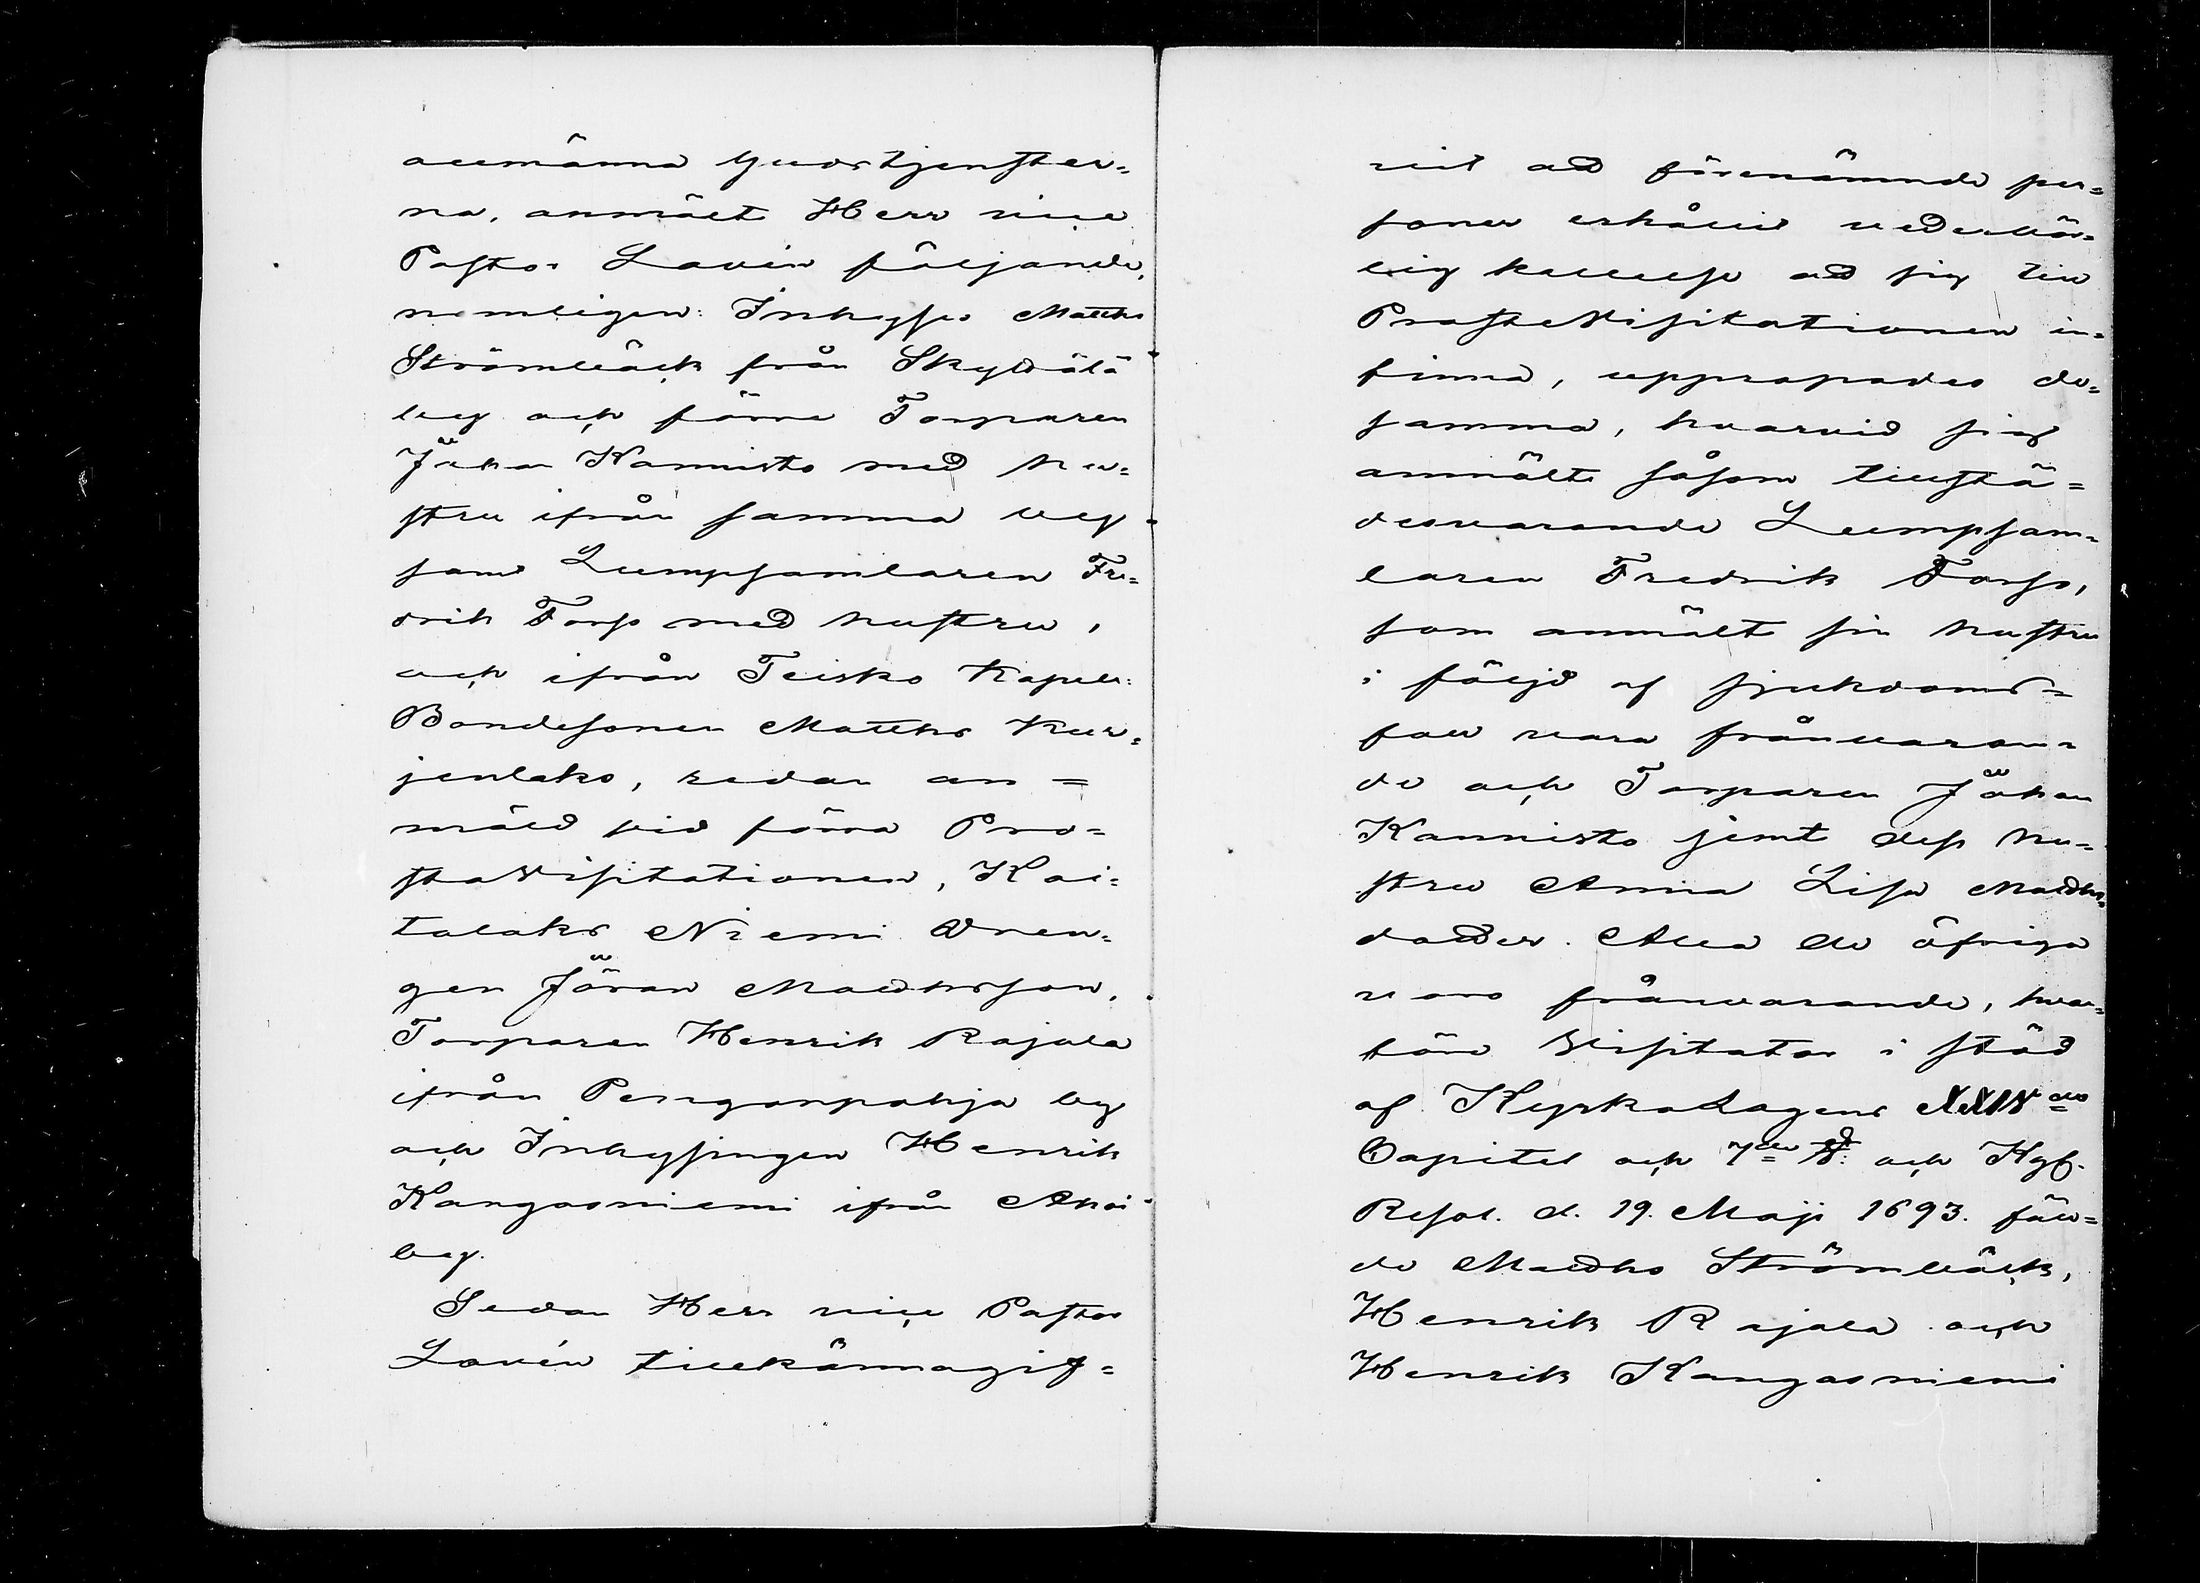 allmänna Gudstjenster=
na, anmält Herr vice
Pastor Lavén följande,
nemligen: Inhyses Matths
Strömbäck från Skyldälä
by och förre Torparen
Johan Kannisto med hu=
stru ifrån samma by
samt Lumpsamlaren Fre=
drik Forss med hustru,
och ifrån Teisko Kapell:
Bondesonen Matths Kur=
jenlaks, redan an=
mäld vid förra Pro=
steVisitationen, Kai=
talaks Niemi Dren=
gen Jöran Matthsson,
Torparen Henrik Rajala
ifrån Pengonpohja by
och Inhysingen Henrik
Kangasniemi ifrån
by.
Sedan Herr vice Pastor
Lavén tillkännagif=
vit att förenämnde per=
soner erhållit vederbör=
lig kallelse att sig till
ProsteVisitationen in=
finna, upropades de=
samma, hvarvid sig
anmälte såsom tillstä=
desvarande Lumpsam=
laren Fredrik Forss,
som anmält sin hustru
i följd af sjukdoms=
fall vara frånvaran=
de och Torparen Johan
Kannisto jemt dess hu=
stru Anna Lisa Matths=
dotter. Alla de öfriga
voro frånvarande, hvar=
före Visitator i stöd
af KyrkoLagens XXIV de
Capitel och 7de §: och Kgl.
Resol. d. 19. Maji 1693. fäll=
de Matths Strömbäck,
Henrik Rajala och
Henrik Kangasniemi